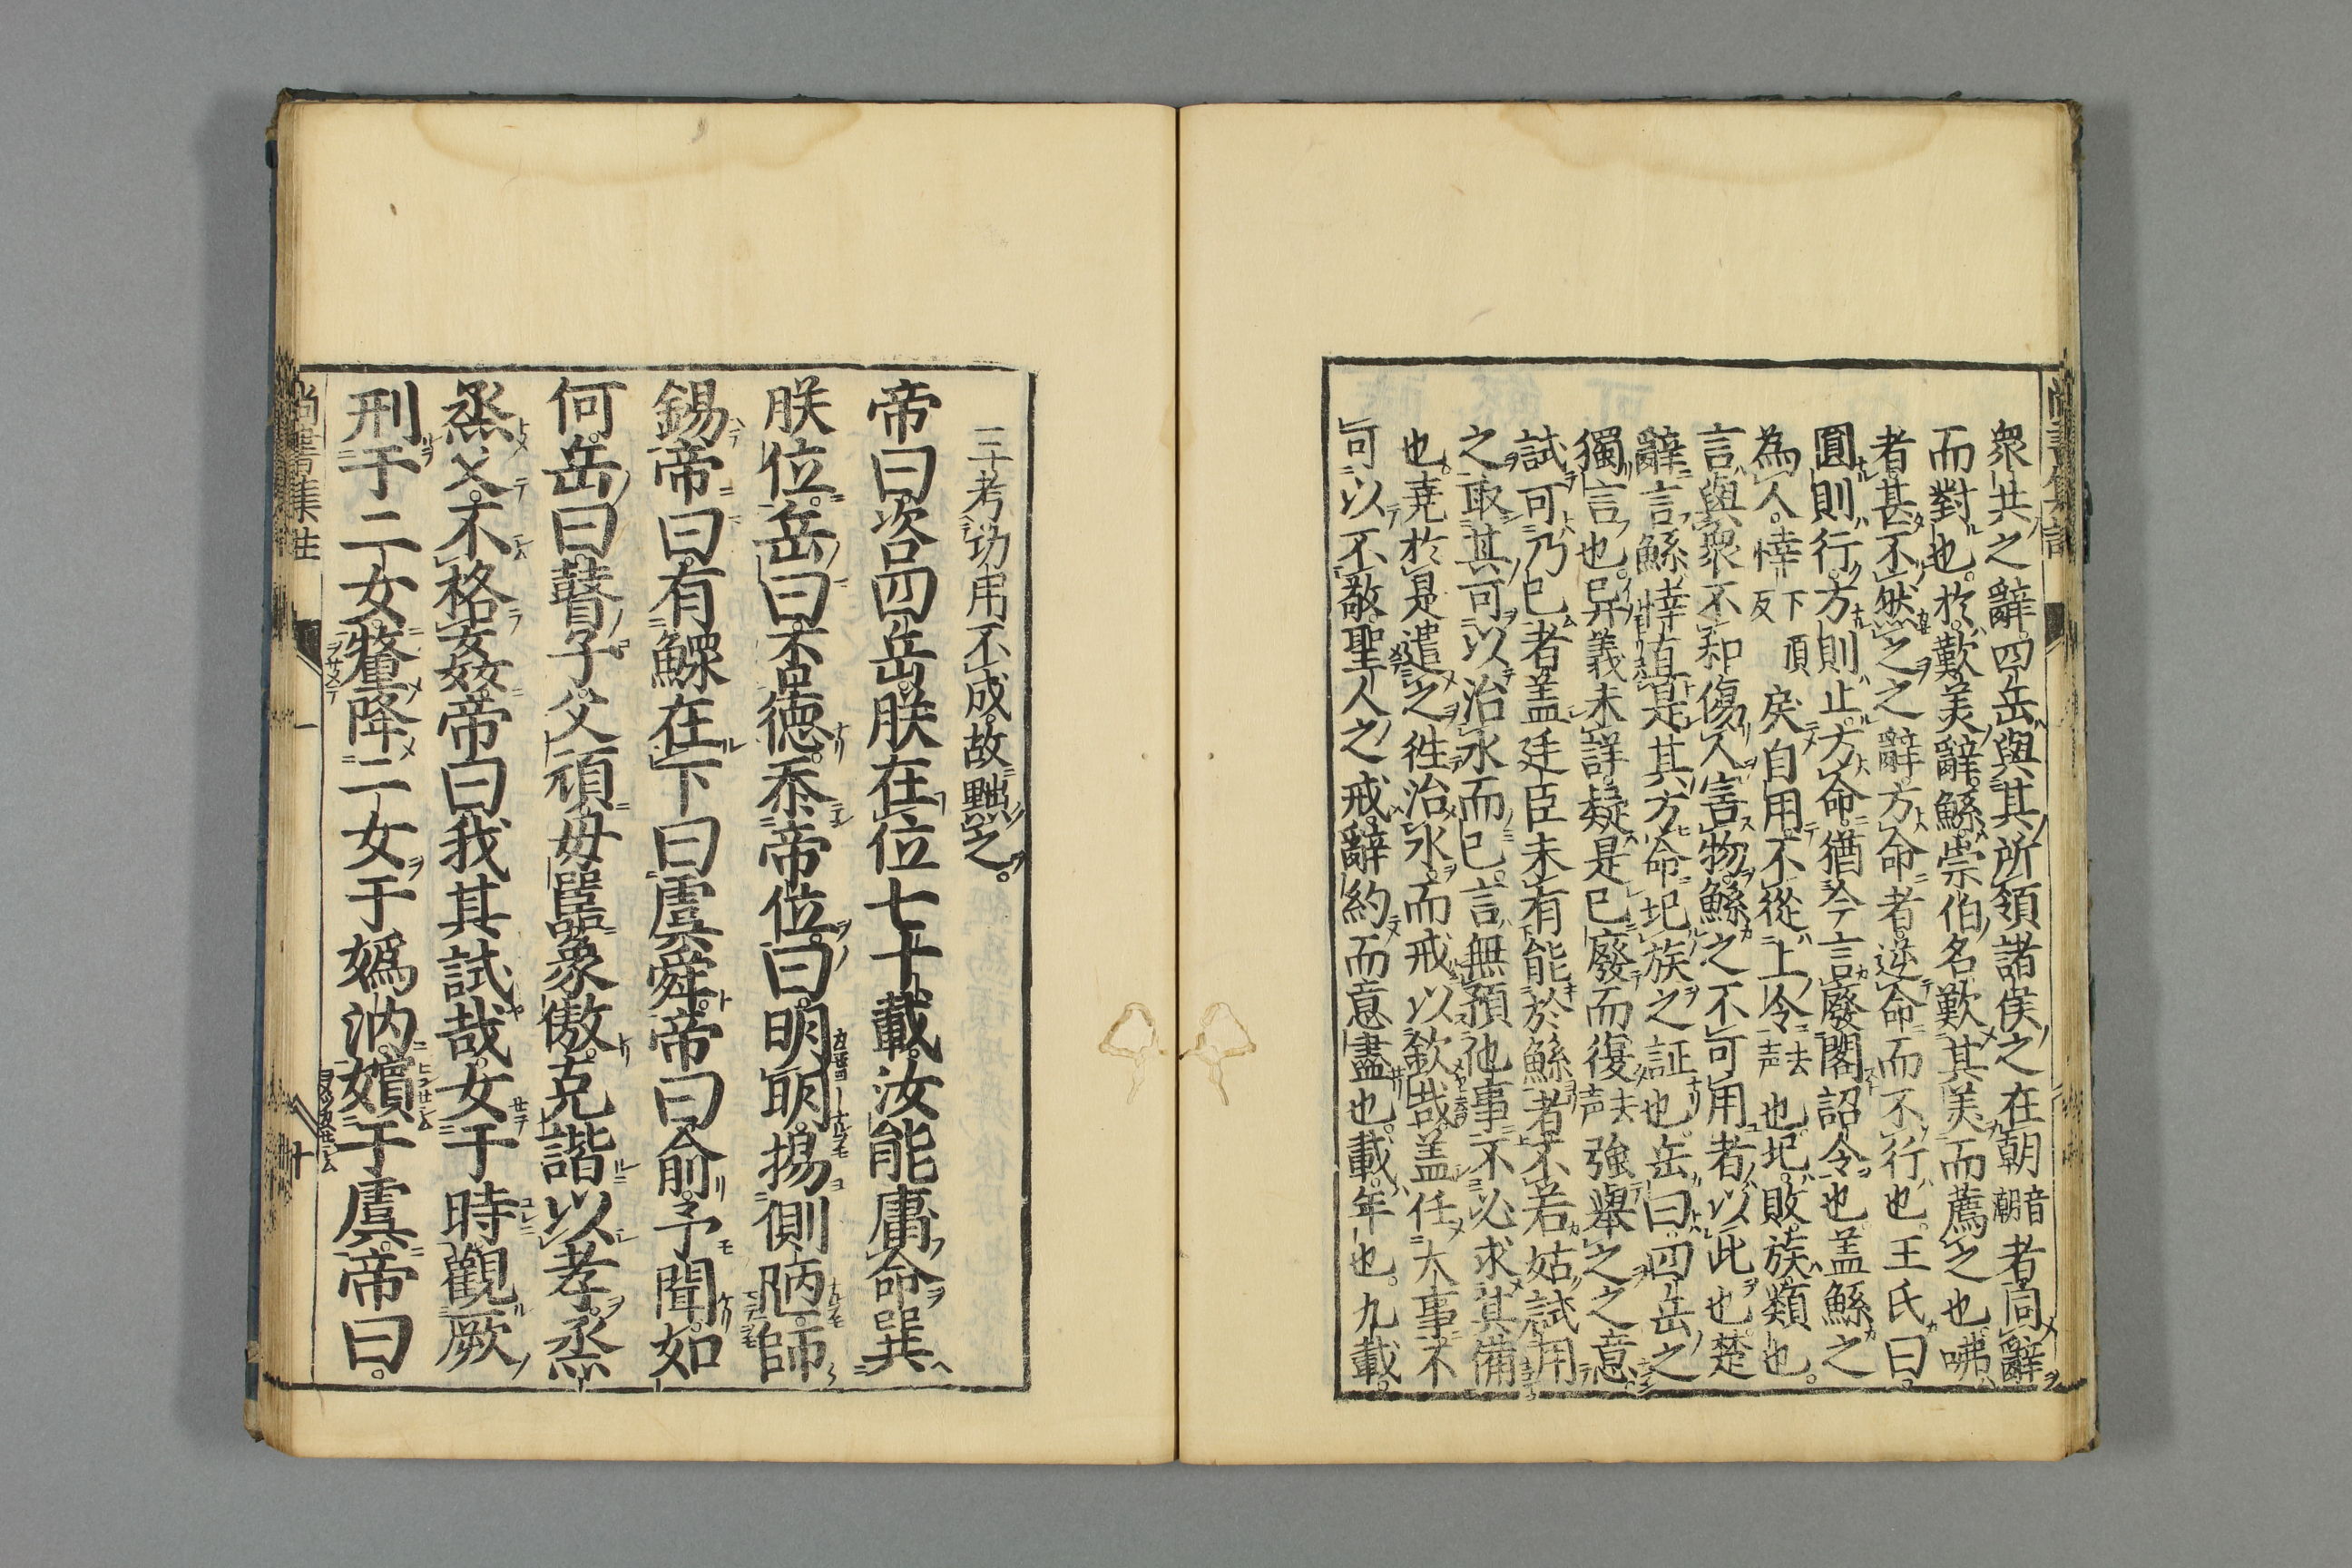 衆共之辭四岳與其所領諸侯之在朝音潮者同辭
而對也於歎美辭鯀崇伯名歎其美而薦之也咈
者甚不然之之辭方命者逆命而不行也王氏曰
圓則行方則止方命猶今言廢閣詔令也盖鯀之
為人悻下頂反戾自用不從上令去声也圮敗族類也
言與衆不和傷人害物鯀之不可用者以此也楚
辭言鯀悻直是其方命圮族之証也岳曰四岳之
獨言也异義未詳疑是已廢而復去声強舉之之意
試可乃已者盖廷臣未有能於鯀者不若姑試用
之取其可以治水而已言無預他事不必求其備
也堯於是遣之徃治水而戒以欽哉盖任大事不
可以不敬聖人之戒辭約而意盡也載年也九載
三考功用不成故黜之
帝曰咨四岳朕在位七十載汝能庸命巽
朕位岳曰否德忝帝位曰明明揚側陋師
錫帝曰有鰥在下曰虞舜帝曰俞予聞如
何岳曰瞽子父頑母嚚象傲克諧以孝烝
烝乂不格姦帝曰我其試哉女于時觀厥
刑于二女釐降二女于嬀汭嬪于虞帝曰
尚書集註 一 十